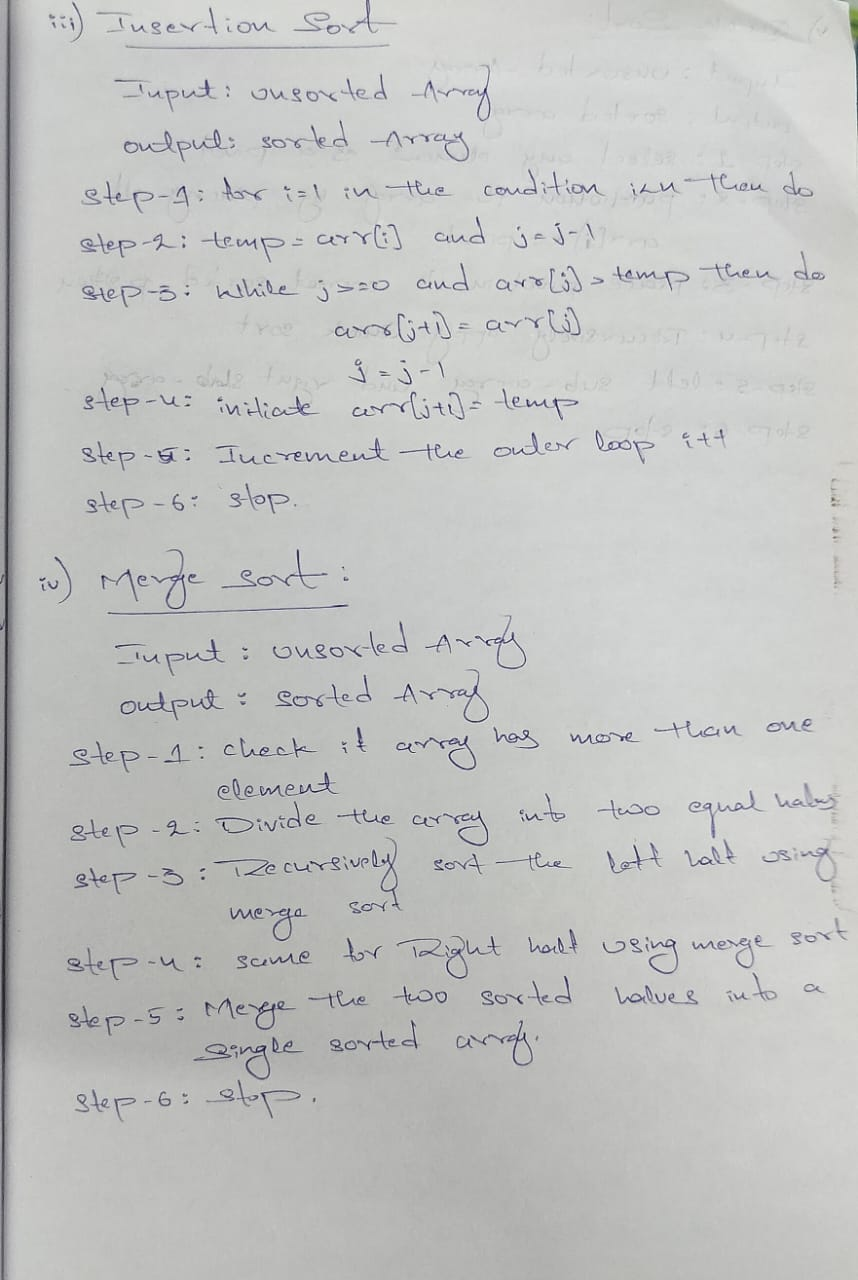 iii) Insertion Sort
Input: unsorted Array
output: sorted Array
step-1: for i=1 in the condition i<n then do
step-2: temp = arr[i] and j=j-1
step-3: while j>=0 and arr[j]>temp then do
arr[j+1] = arr[j]
j = j-1
step-4: initiate arr[j+1] = temp
step-5: Increment the outer loop i++
step-6: stop.
iv) Merge sort:
Input: unsorted Array
output: sorted Array
step-1: check if array has more than one
element
step-2: Divide the array into two equal halves
step-3: Recursively sort the left half using
merge sort
step-4: same for Right half using merge sort
step-5: Merge the two sorted halves into a
single sorted array.
step-6: stop.